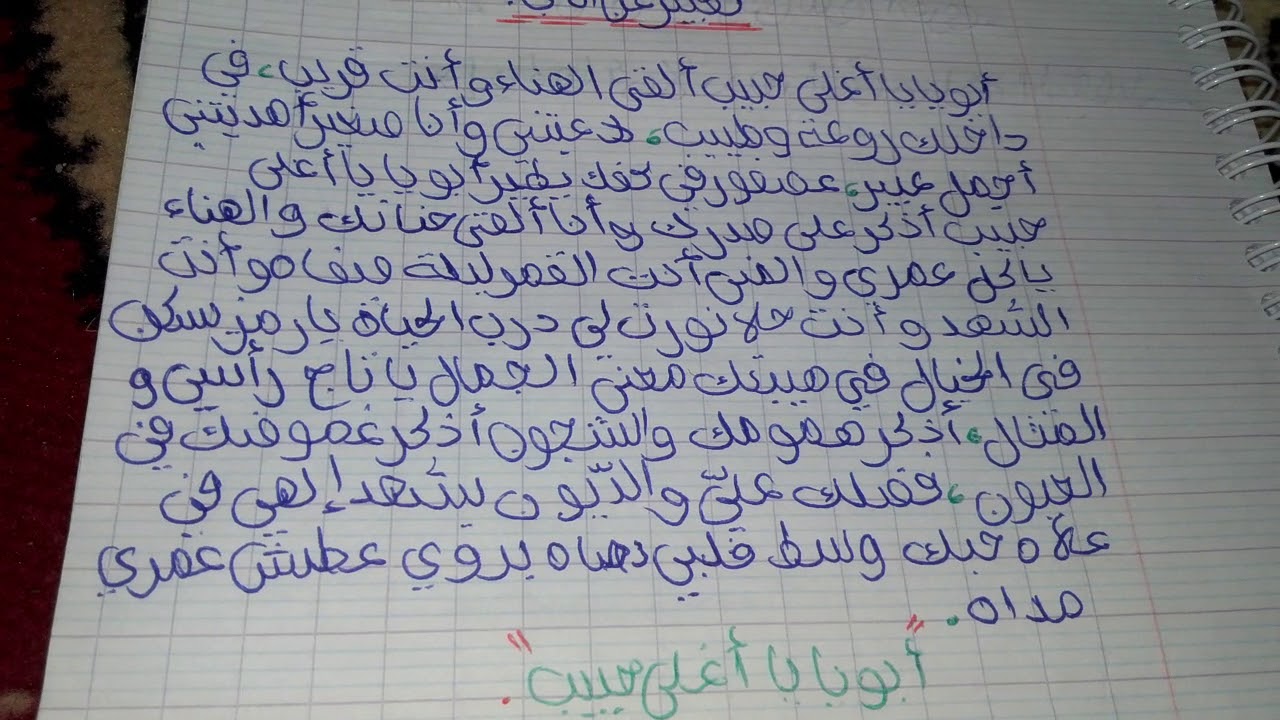 تعبير عن الأب.
أبويا يا أغلى حبيب ألقى الهناء وأنت قريب، في
داخلك روعة وطيب، دعتني وأنا صغير أهديتني
أجمل عبير، عصفور في كفك يطير أبويا يا أغلى
حبيب أذكر على صدرك وأنا ألقى حنانك والهناء
يا كل عمري والمنى أنت القمر ليلة صفا هو أنت
الشهد وأنت حلا نورت لي درب الحياة يا رمز سكن
في الخيال في هيبتك معنى الجمال يا تاج رأسي و
المثال، أذكر همومك والشجون أذكر غموضك في
العيون، فضلك عليّ والدّيون يشهد إلهي في
علاه حبك وسط قلبي دماه يروي عطش عمري
مداه.
"أبويا يا أغلى حبيب".